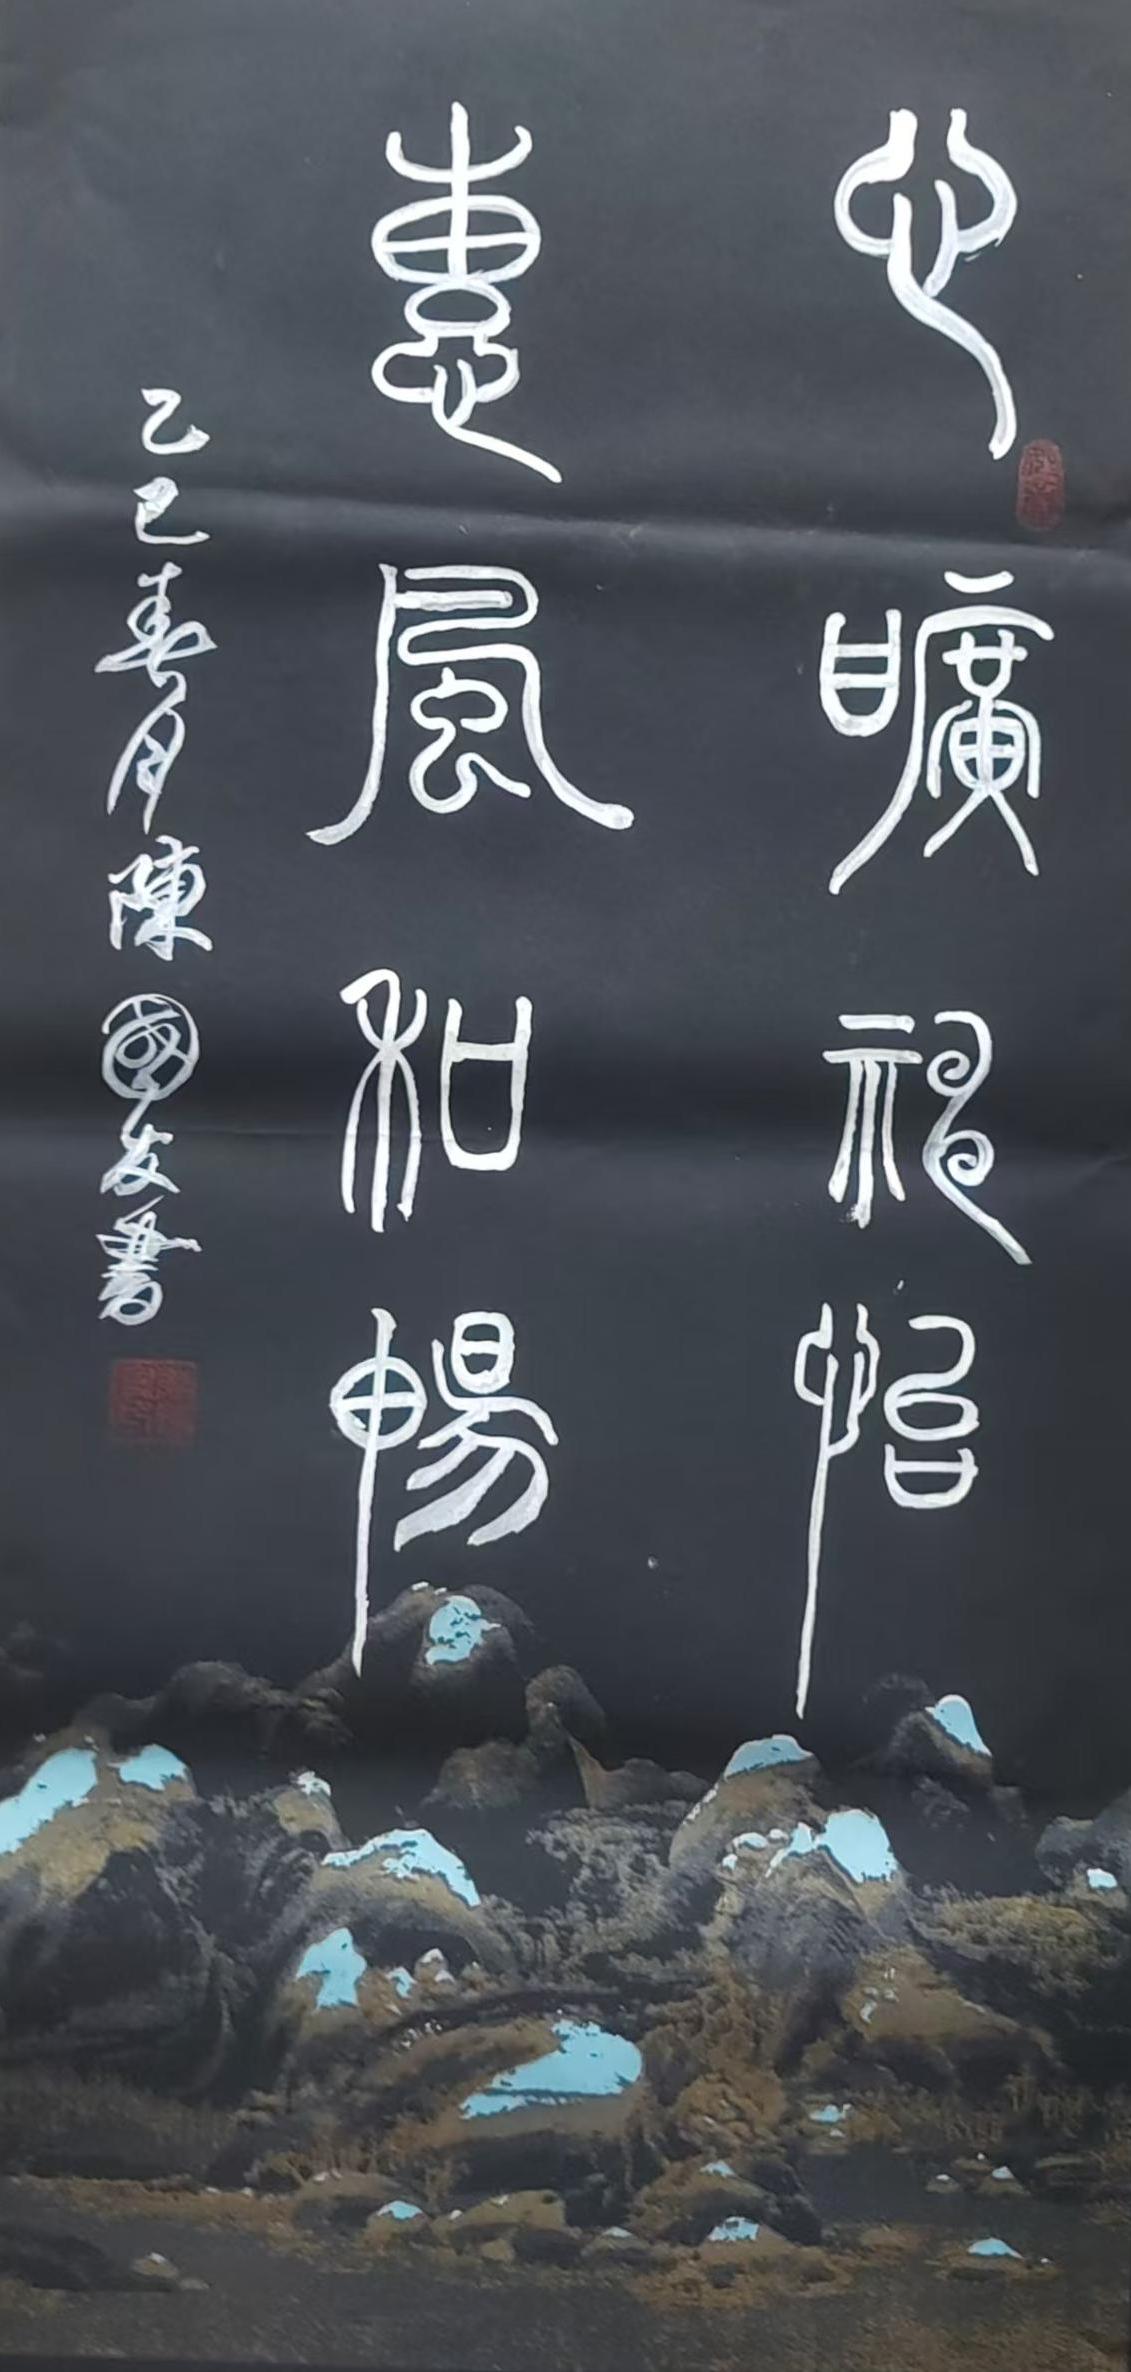 心曠神怡
惠風和暢
乙巳春月陳國友書